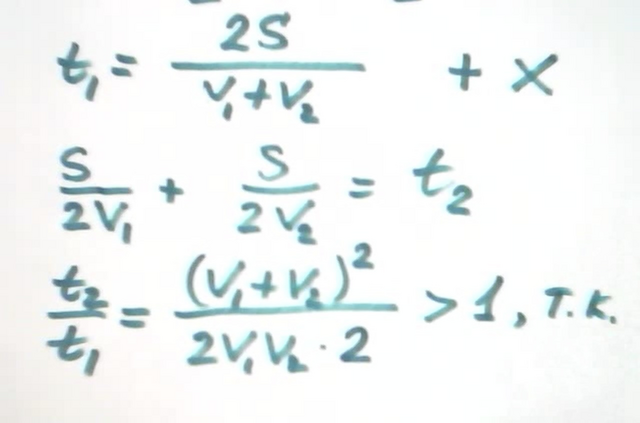 t₁ = 2S / (V₁+V₂) + X
S / 2V₁ + S / 2V₂ = t₂
t₂ / t₁ = (V₁+V₂)² / 2V₁V₂·2 > 1, т.к.